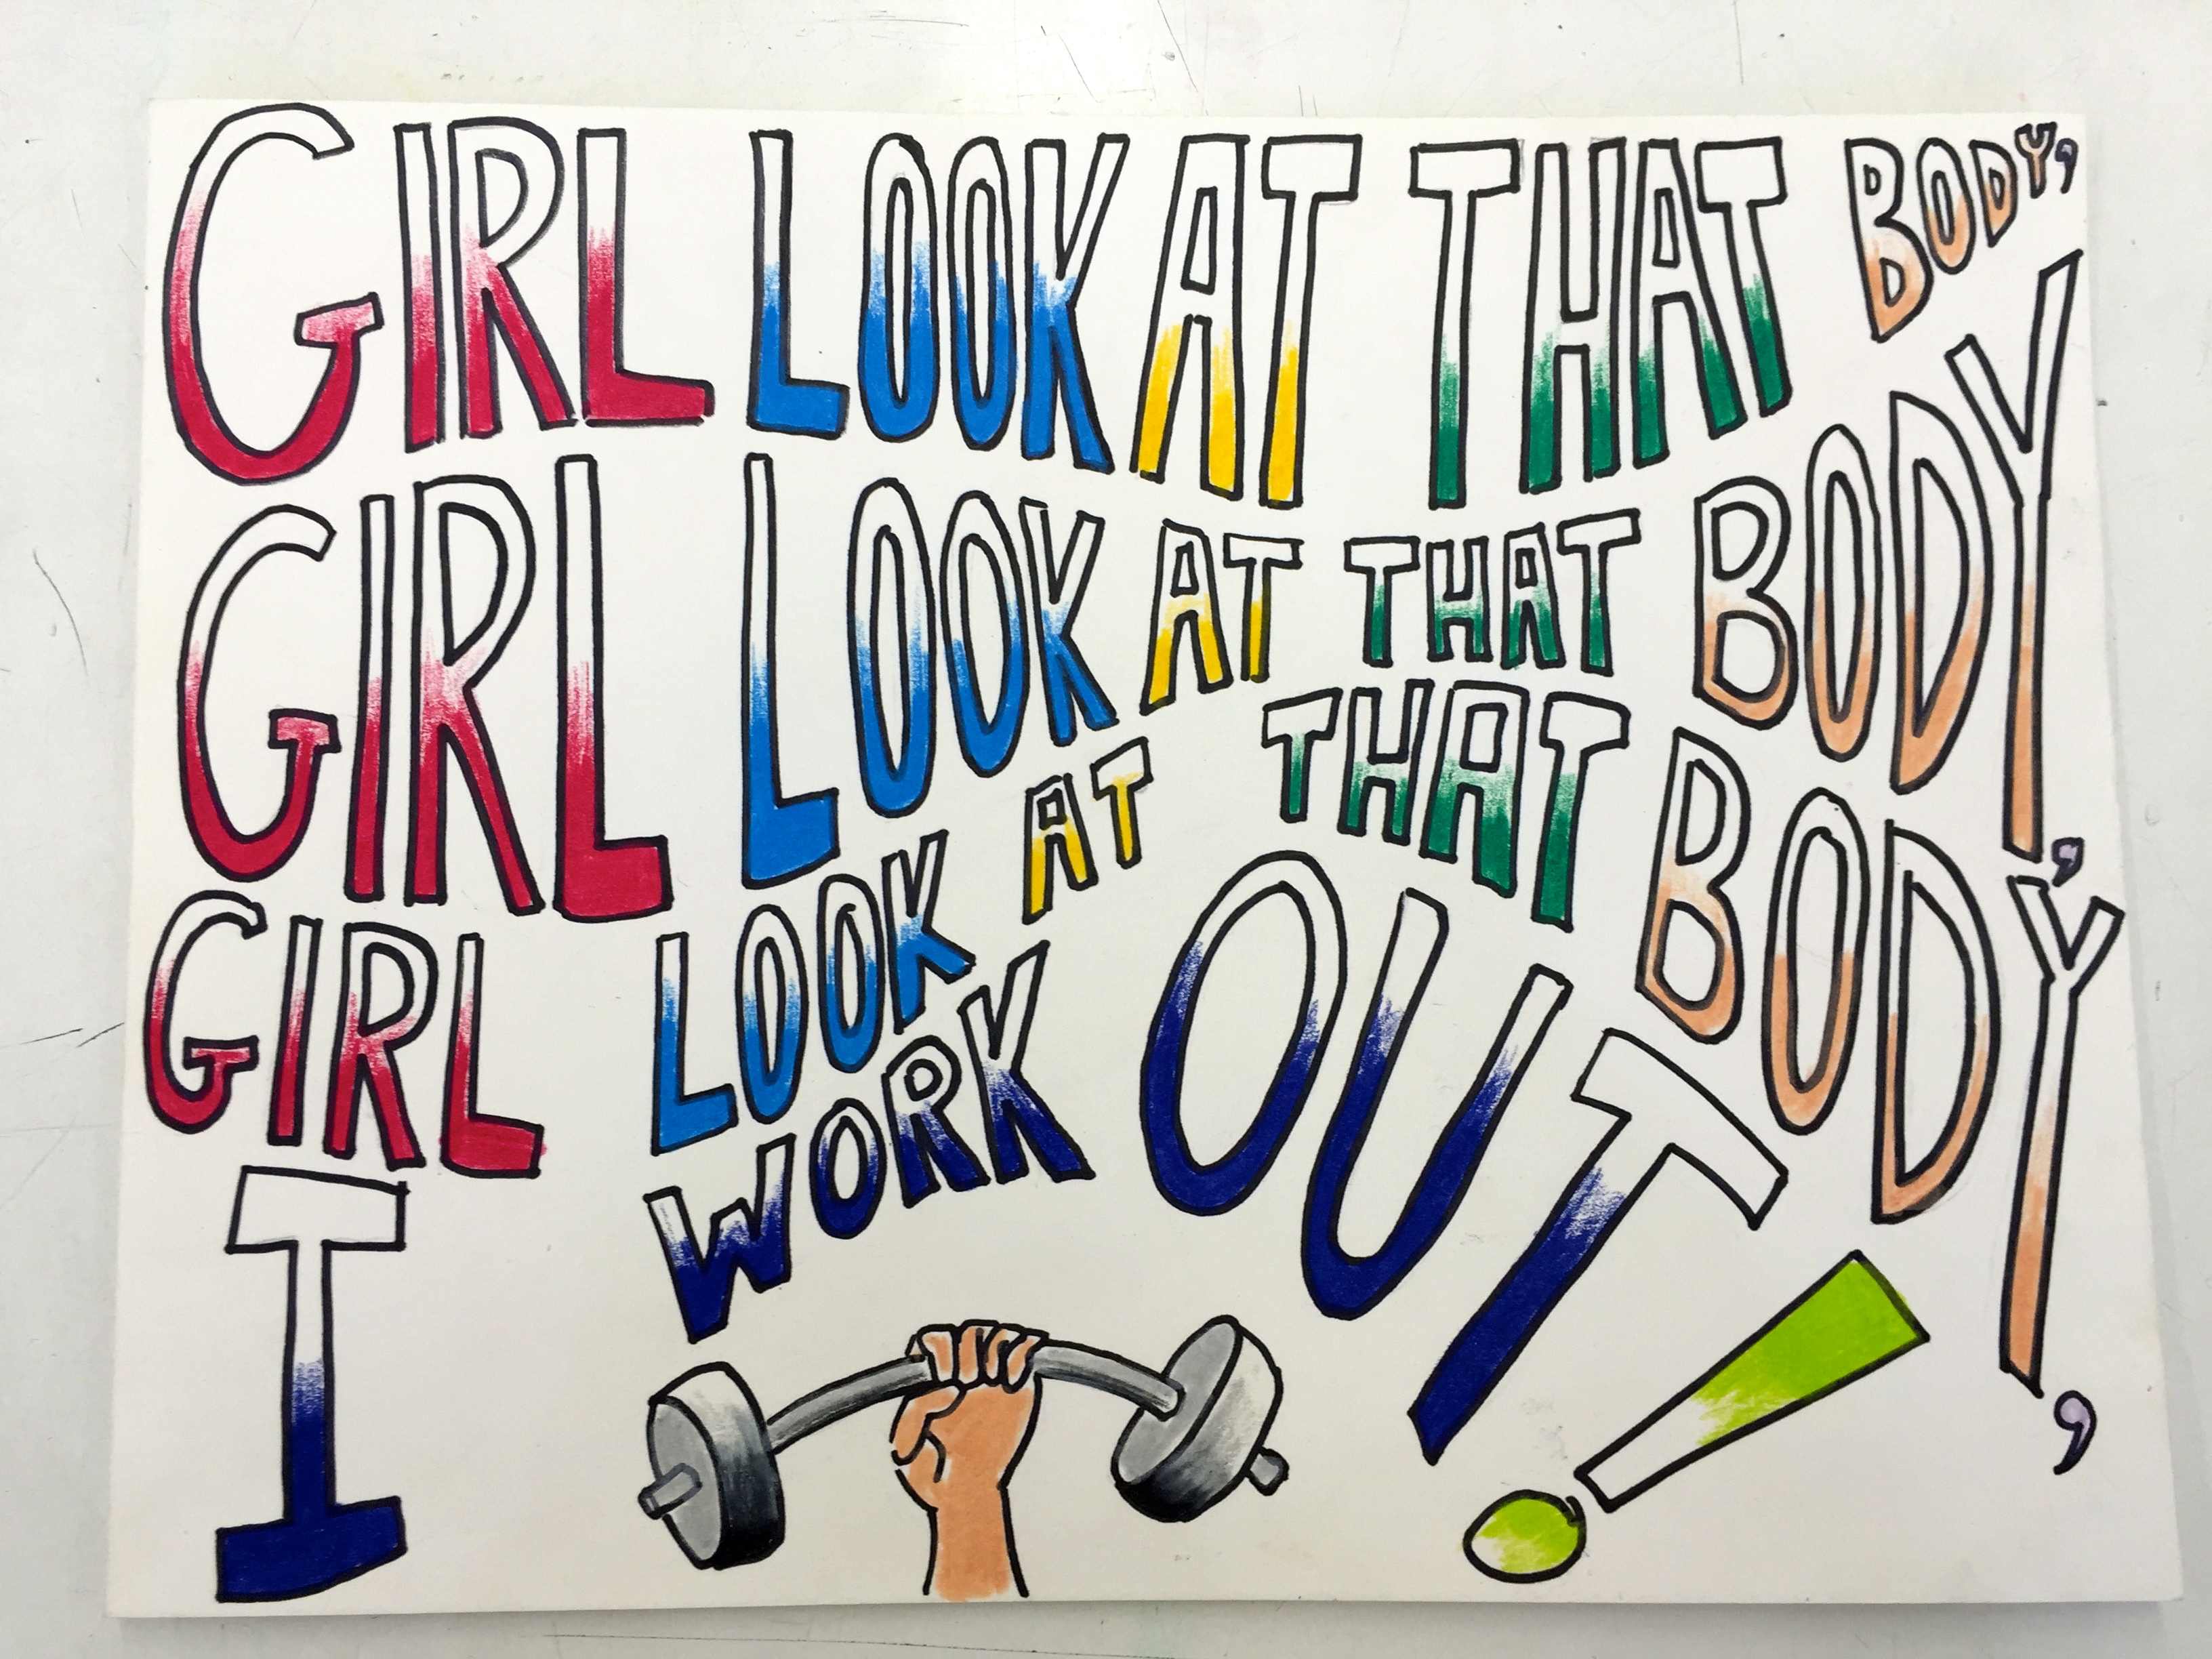 GIRL LOOK AT THAT BODY,
GIRL LOOK AT THAT BODY,
GIRL LOOK AT THAT BODY,
I WORK OUT!